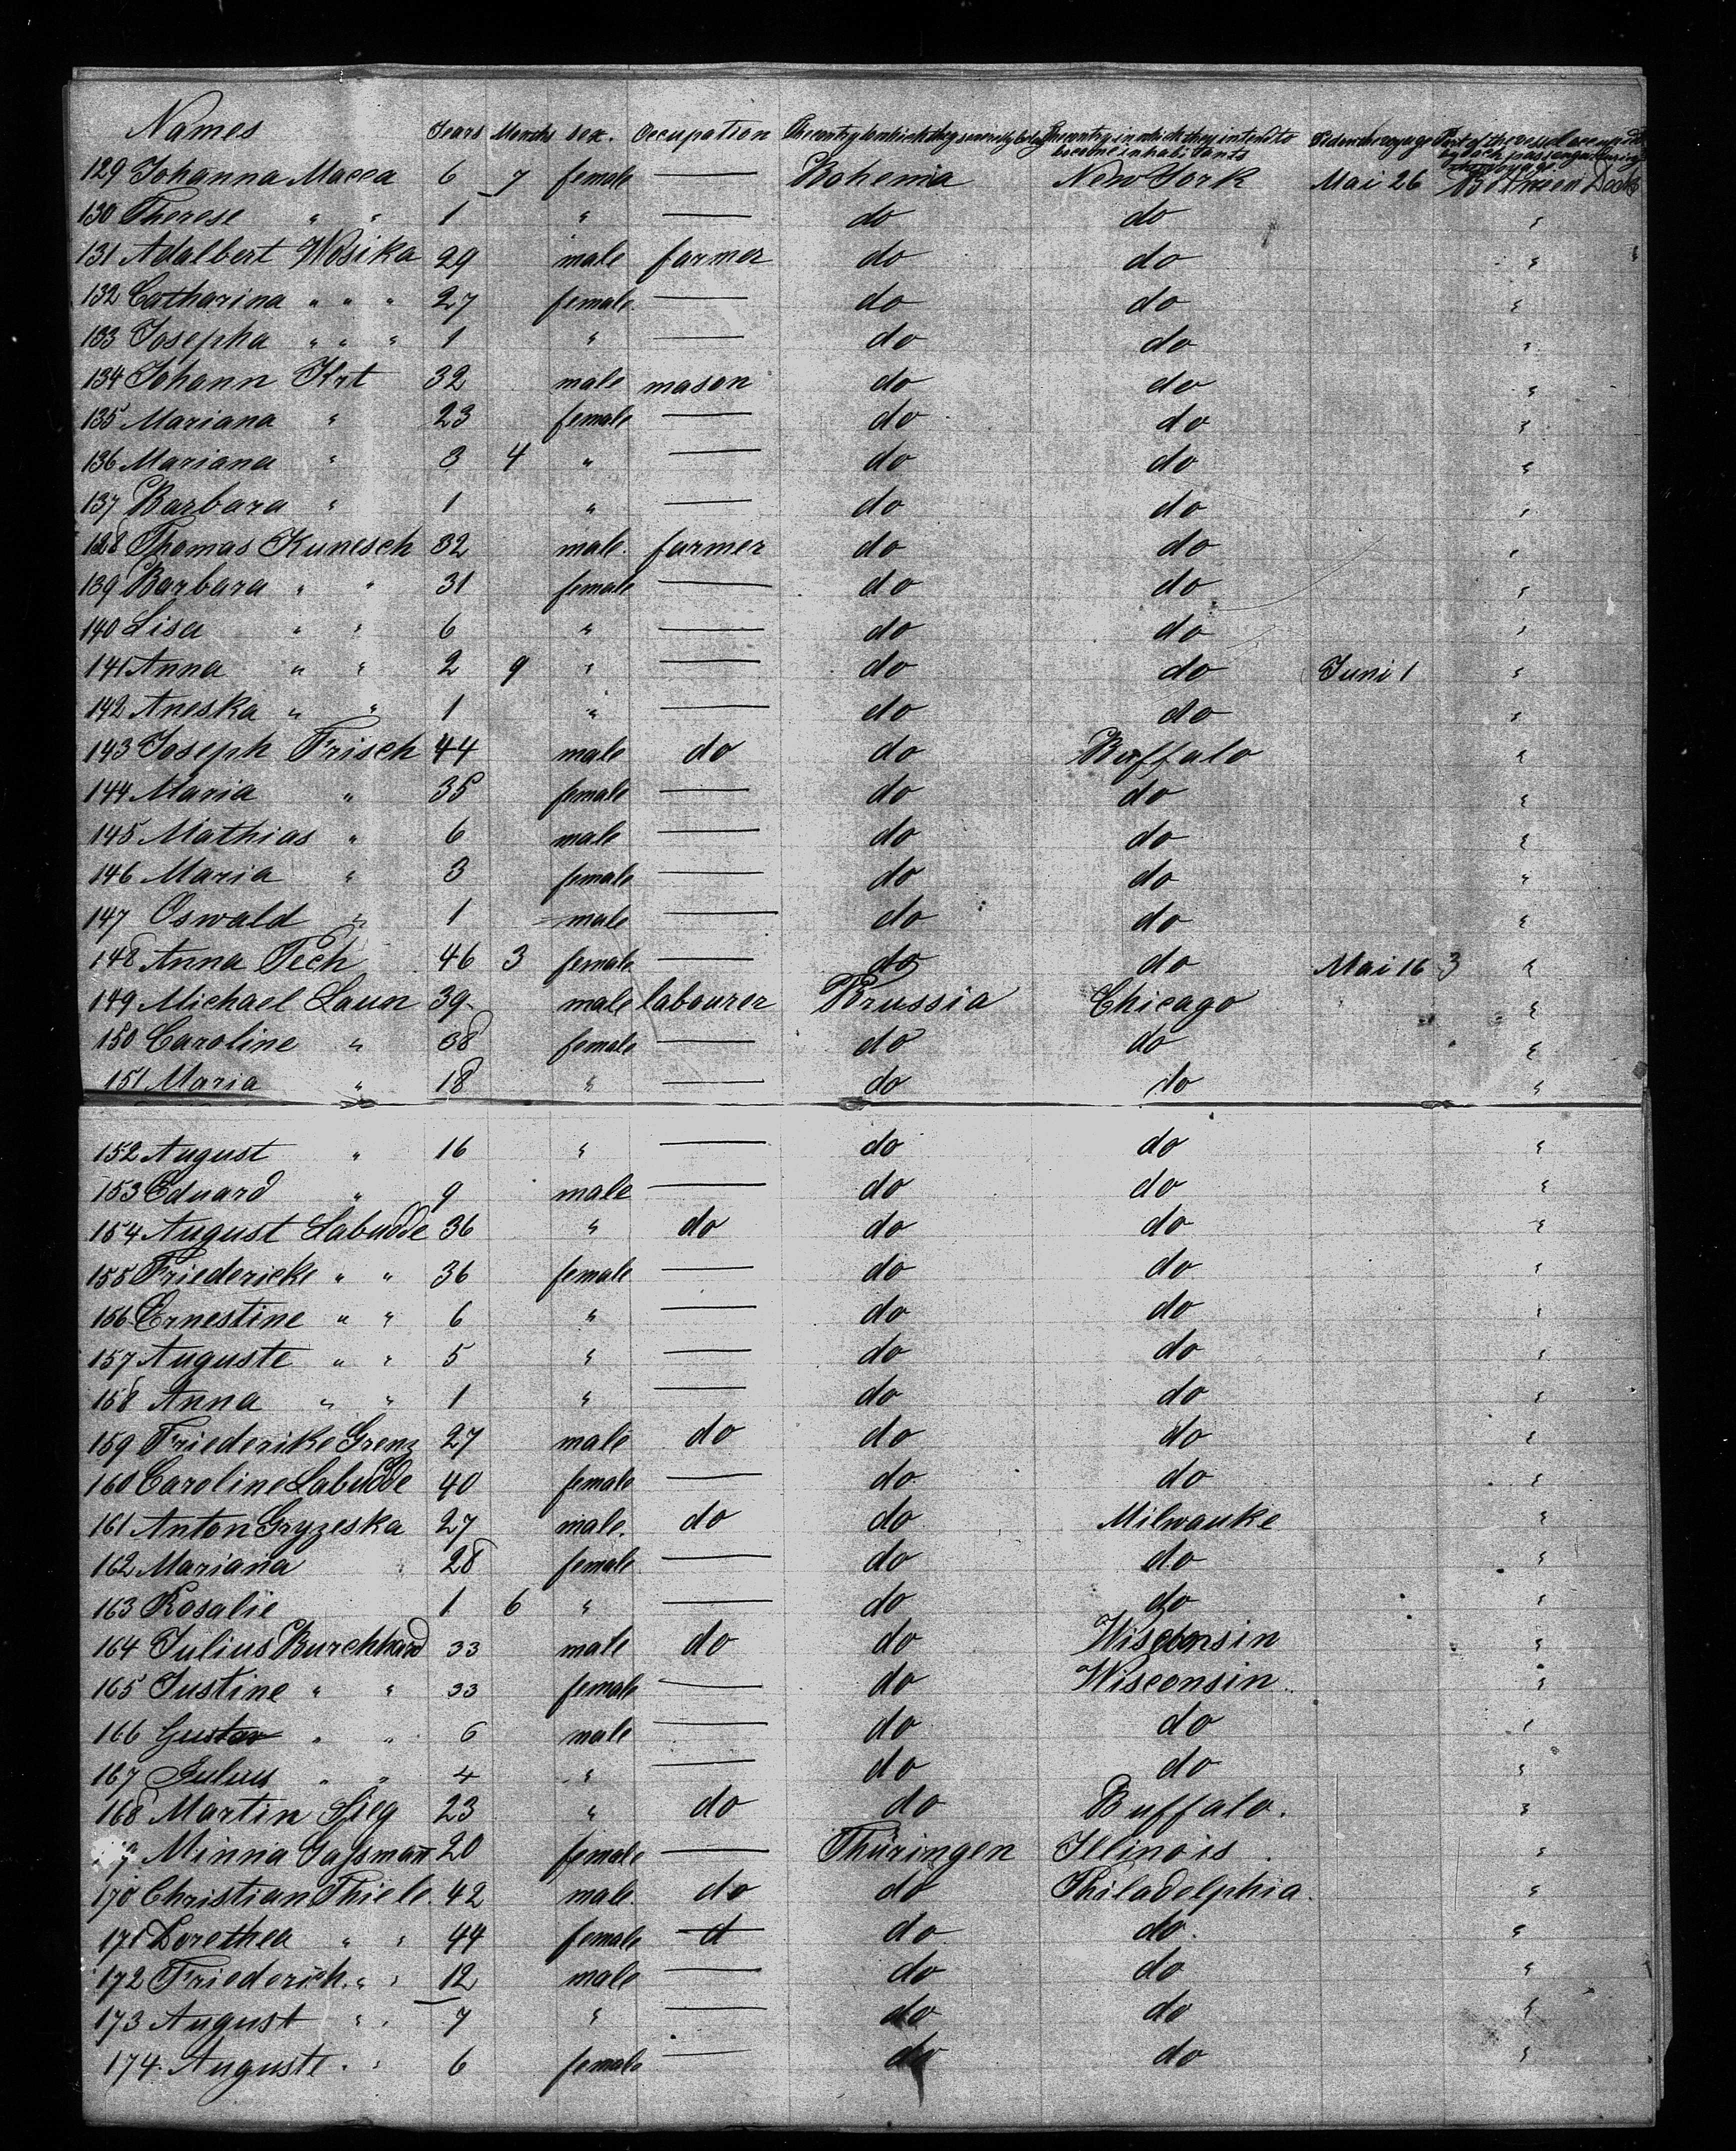 Names Years Months sex. Occupation The country to which they severally belong The country in which they intend to become inhabitants Died on the voyage Part of the vessel occupied by each passenger during the voyage
129 Johanna Macca 6 7 female — Bohemia New York Mai 26 Between Deck
130 Therese " " 1 " — do do "
131 Adalbert Wosika 29 male farmer do do "
132 Catharina " " " 27 female — do do "
133 Josepha " " " 1 " — do do "
134 Johann Krt 32 male mason do do "
135 Mariana " 23 female — do do "
136 Mariana " 3 4 " — do do "
137 Barbara " 1 " — do do "
128 Thomas Kunesch 32 male. farmer do do "
139 Barbara " " 31 female — do do "
140 Lisa " " 6 " — do do "
141 Anna " " 2 9 " — do do Juni 1 "
142 Aneska " " 1 " — do do "
143 Joseph Frisch 44 male do do Buffalo "
144 Maria " 35 female — do do "
145 Mathias " 6 male — do do "
146 Maria " 3 female — do do "
147 Oswald " 1 male — do do "
148 Anna Pech 46 3 female — do do Mai 16 3 "
149 Michael Laun 39 male labourer Prussia Chicago "
150 Caroline " 38 female — do do "
151 Maria " 18 " — do do "
152 August " 16 " — do do "
153 Eduard " 9 male — do do "
154 August Labudde 36 " do do do "
155 Friedericke " " 36 female — do do "
156 Ernestine " " 6 " — do do "
157 Auguste " " 5 " — do do "
158 Anna " " 1 " — do do "
159 Friederike Grenz 27 male do do do "
160 Caroline Labudde 40 female — do do "
161 Anton Gryzeska 27 male. do do Milwauke "
162 Mariana 28 female — do do "
163 Rosalie 1 6 " — do do "
164 Julius Burchhard 33 male do do Wisconsin "
165 Justine " " 33 female — do Wisconsin "
166 Gustav " " 6 male — do do "
167 Julius " " 4 " — do do "
168 Martin Sieg 23 " do do Buffalo. "
9 Minna Gassmann 20 female — Thüringen Illinois. "
170 Christian Thiele. 42 male. do do Philadelphia. "
171 Dorethea " " 44 female d do do. "
172 Friederich. " " 12 male — do do "
173 August " " 7 " — do do "
174. Auguste " " 6 female — do do "